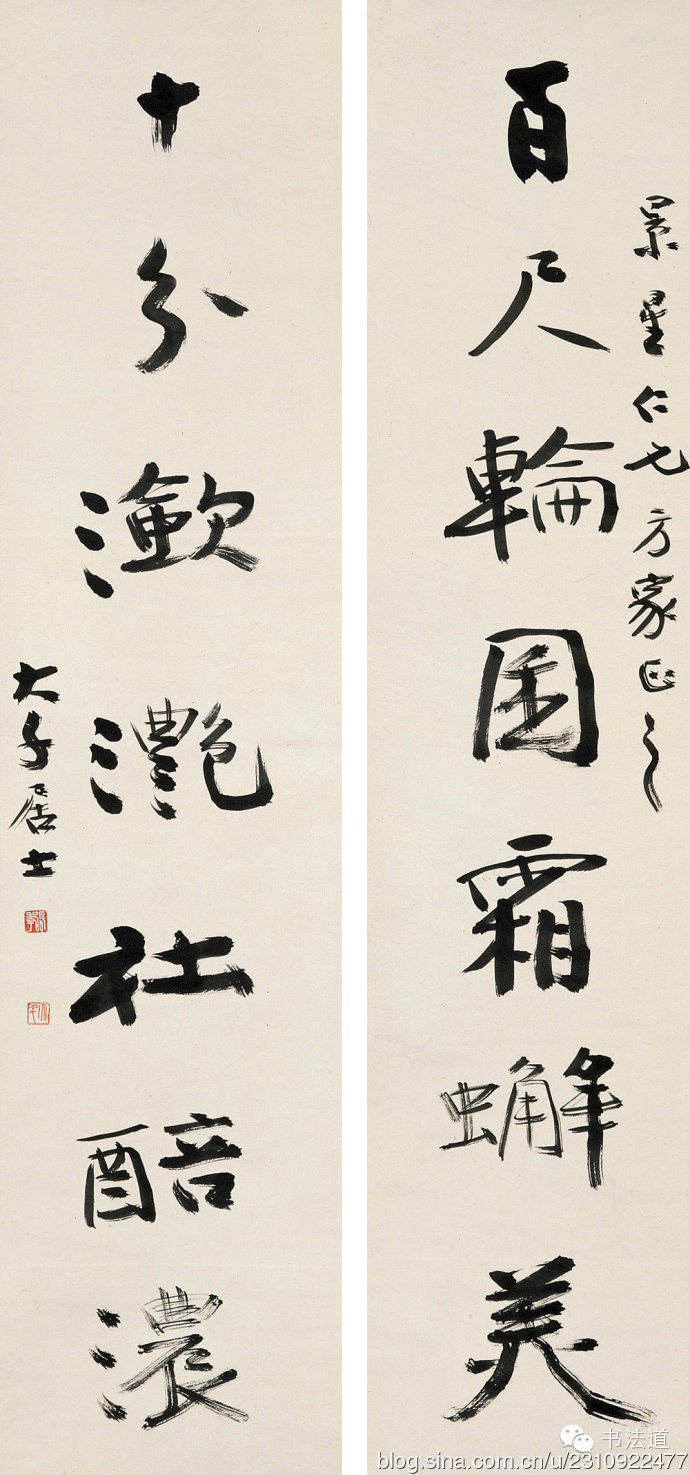 景星仁兄方家正之
百尺輪囷霜蟹美
十分瀲灧社醅濃
大千居士
书法道
blog.sina.com.cn/u/2310922477